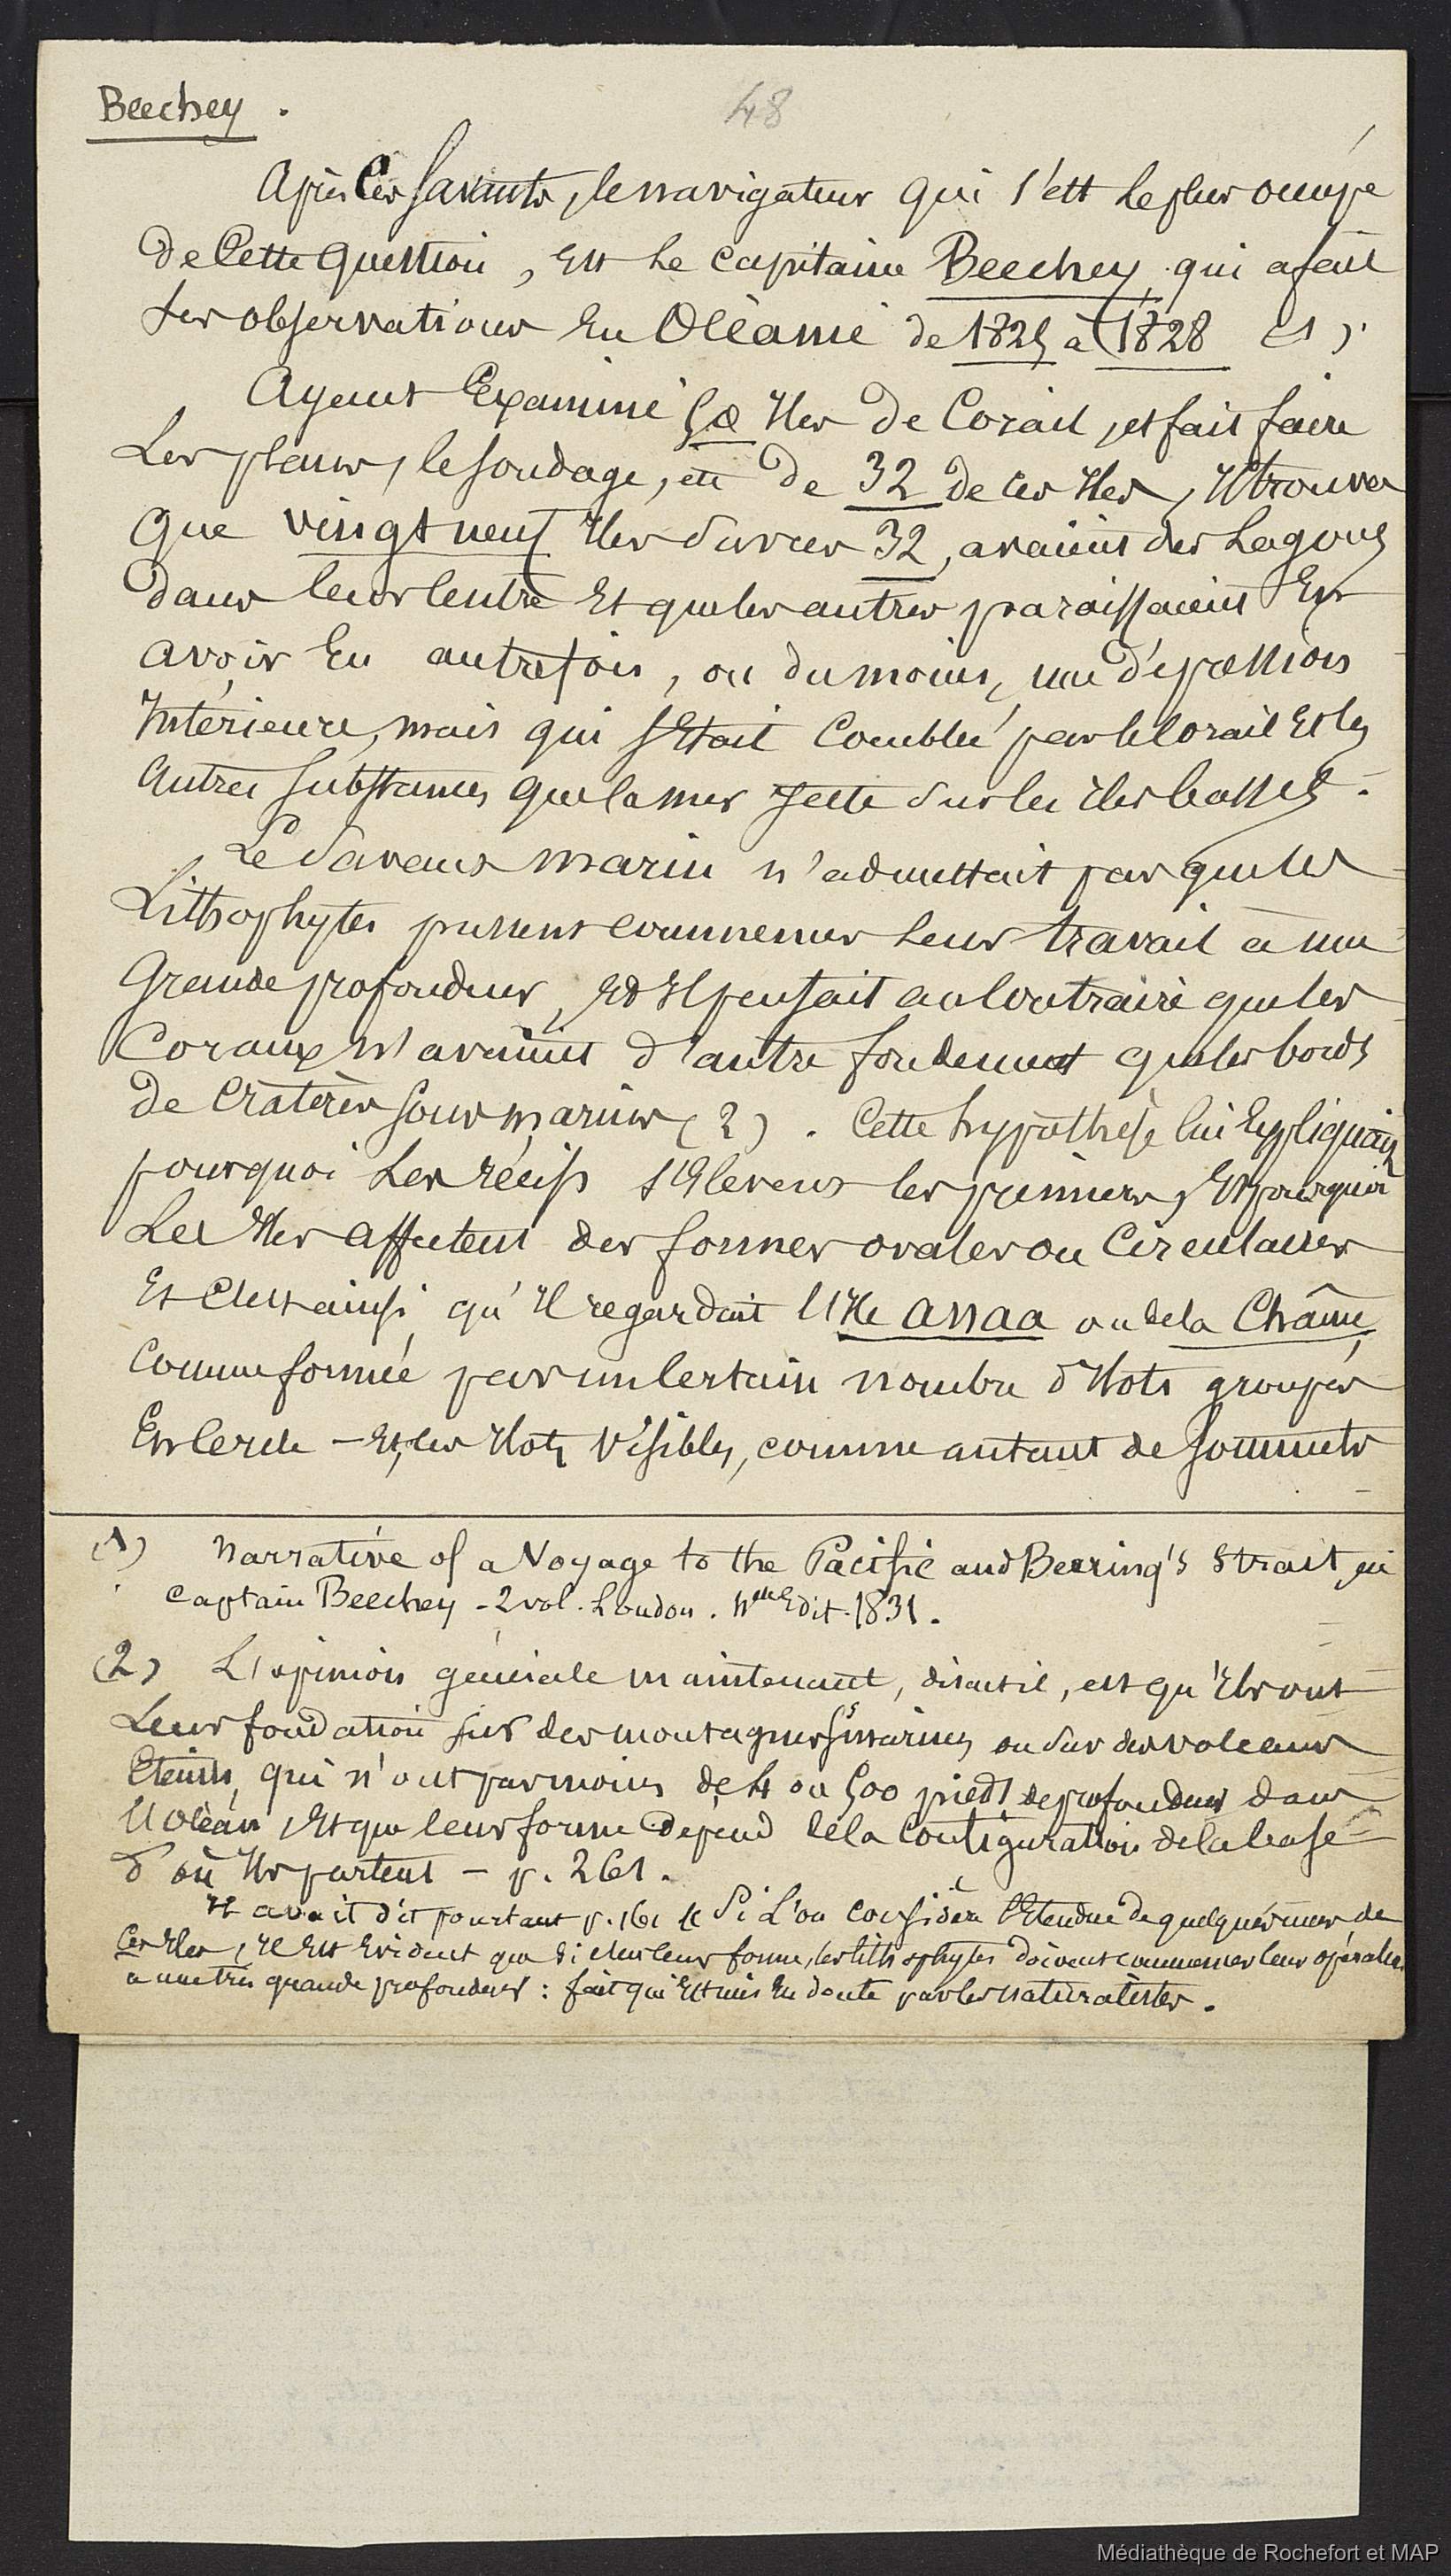 Beechey.
48
Après ces savants, le navigateur qui s'est le plus occupé
de cette question, est le capitaine Beechey qui a fait
ses observations en Océanie de 1825 à 1828 (1).
Ayant examiné les îles de Corail, et fait faire
Les plans, le sondage, etc de 32 de ces îles, il trouva
que vingt neuf îles sur ces 32, avaient des Lagons
dans leur centre et que les autres paraissaient en
avoir eu autrefois, ou du moins, une dépression
Intérieure, mais qui s'était comblée par le Corail et les
autres substances que la mer jette sur les îles basses.
Le savant marin n'admettait pas que les
Lithophytes pussent commencer leur travail à une
Grande profondeur, et il pensait au contraire que les
Coraux n'avaient d'autre fondement que les bords
de cratères sous marins (2). Cette hypothèse lui expliquait
pourquoi les récifs s'élèvent les premiers, et pourquoi
Les îles affectent des formes ovales ou circulaires
Et c'est ainsi qu'il regardait l'île anaa ou de la Chaîne,
Comme formée par un certain nombre d'îlots groupés
En cercle - et, ces îlots visibles, comme autant de sommets
(1) Narrative of a Voyage to the Pacific and Beering's Strait
captain Beechey - 2 vol. London. Nelle Edit. 1831.
(2) L'opinion générale maintenant, disait il, est qu'elles ont
Leur fondation sur des montagnes s/marines ou sur des volcans
éteints, qui n'ont pas moins de 4 ou 500 pieds de profondeur dans
l'Océan, et que leur forme dépend de la configuration de la base
d'où ils partent - p. 261.
Il avait dit pourtant p. 161 « Si L'on considère l'étendue de quelques unes de
ces îles, il est évident que si c'est leur forme, les lithophytes doivent commencer leur opération
à une très grande profondeur : fait qui est mis en doute par les naturalistes.
Médiathèque de Rochefort et MAP